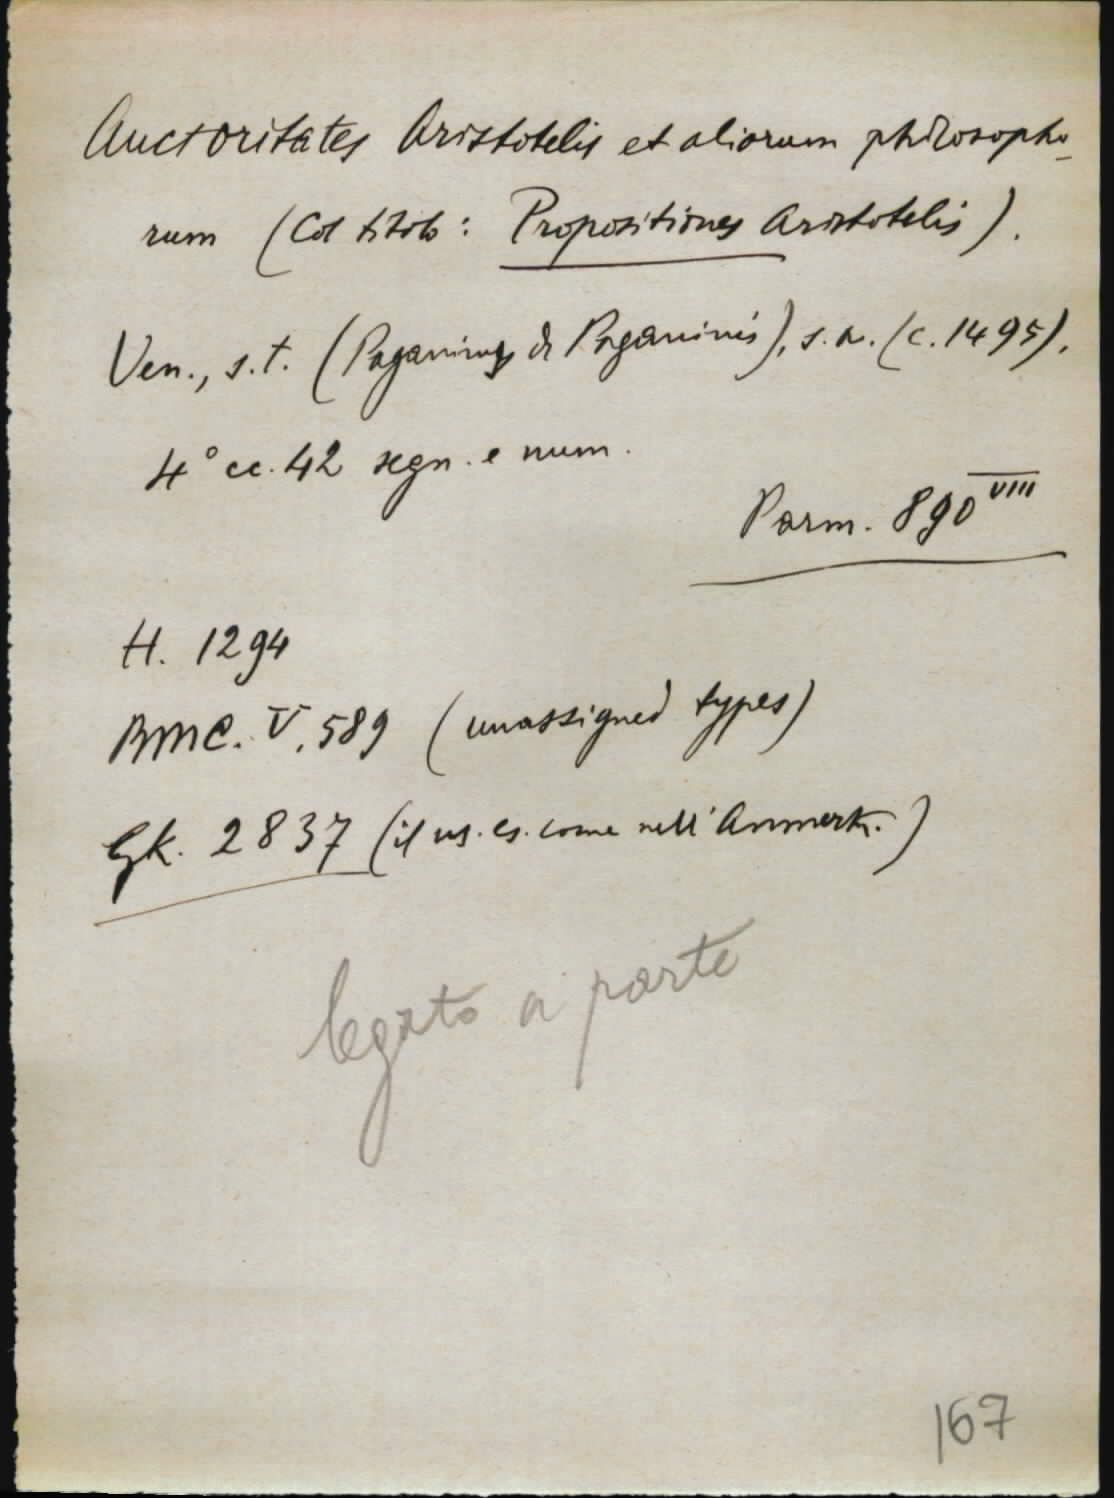 Auctoritates Aristotelis et aliorum philosopho-
rum (Col titolo: Propositiones Aristotelis).
Ven., s.t. (Paganinus de Paganinis), s.a. (c. 1495).
4° cc. 42 segn. e num.
Parm. 890 VIII
H. 1294
BMC. V. 589 (unassigned types)
Gk. 2837 (il ns. es. come nell'Anmerk.)
legato a parte
167